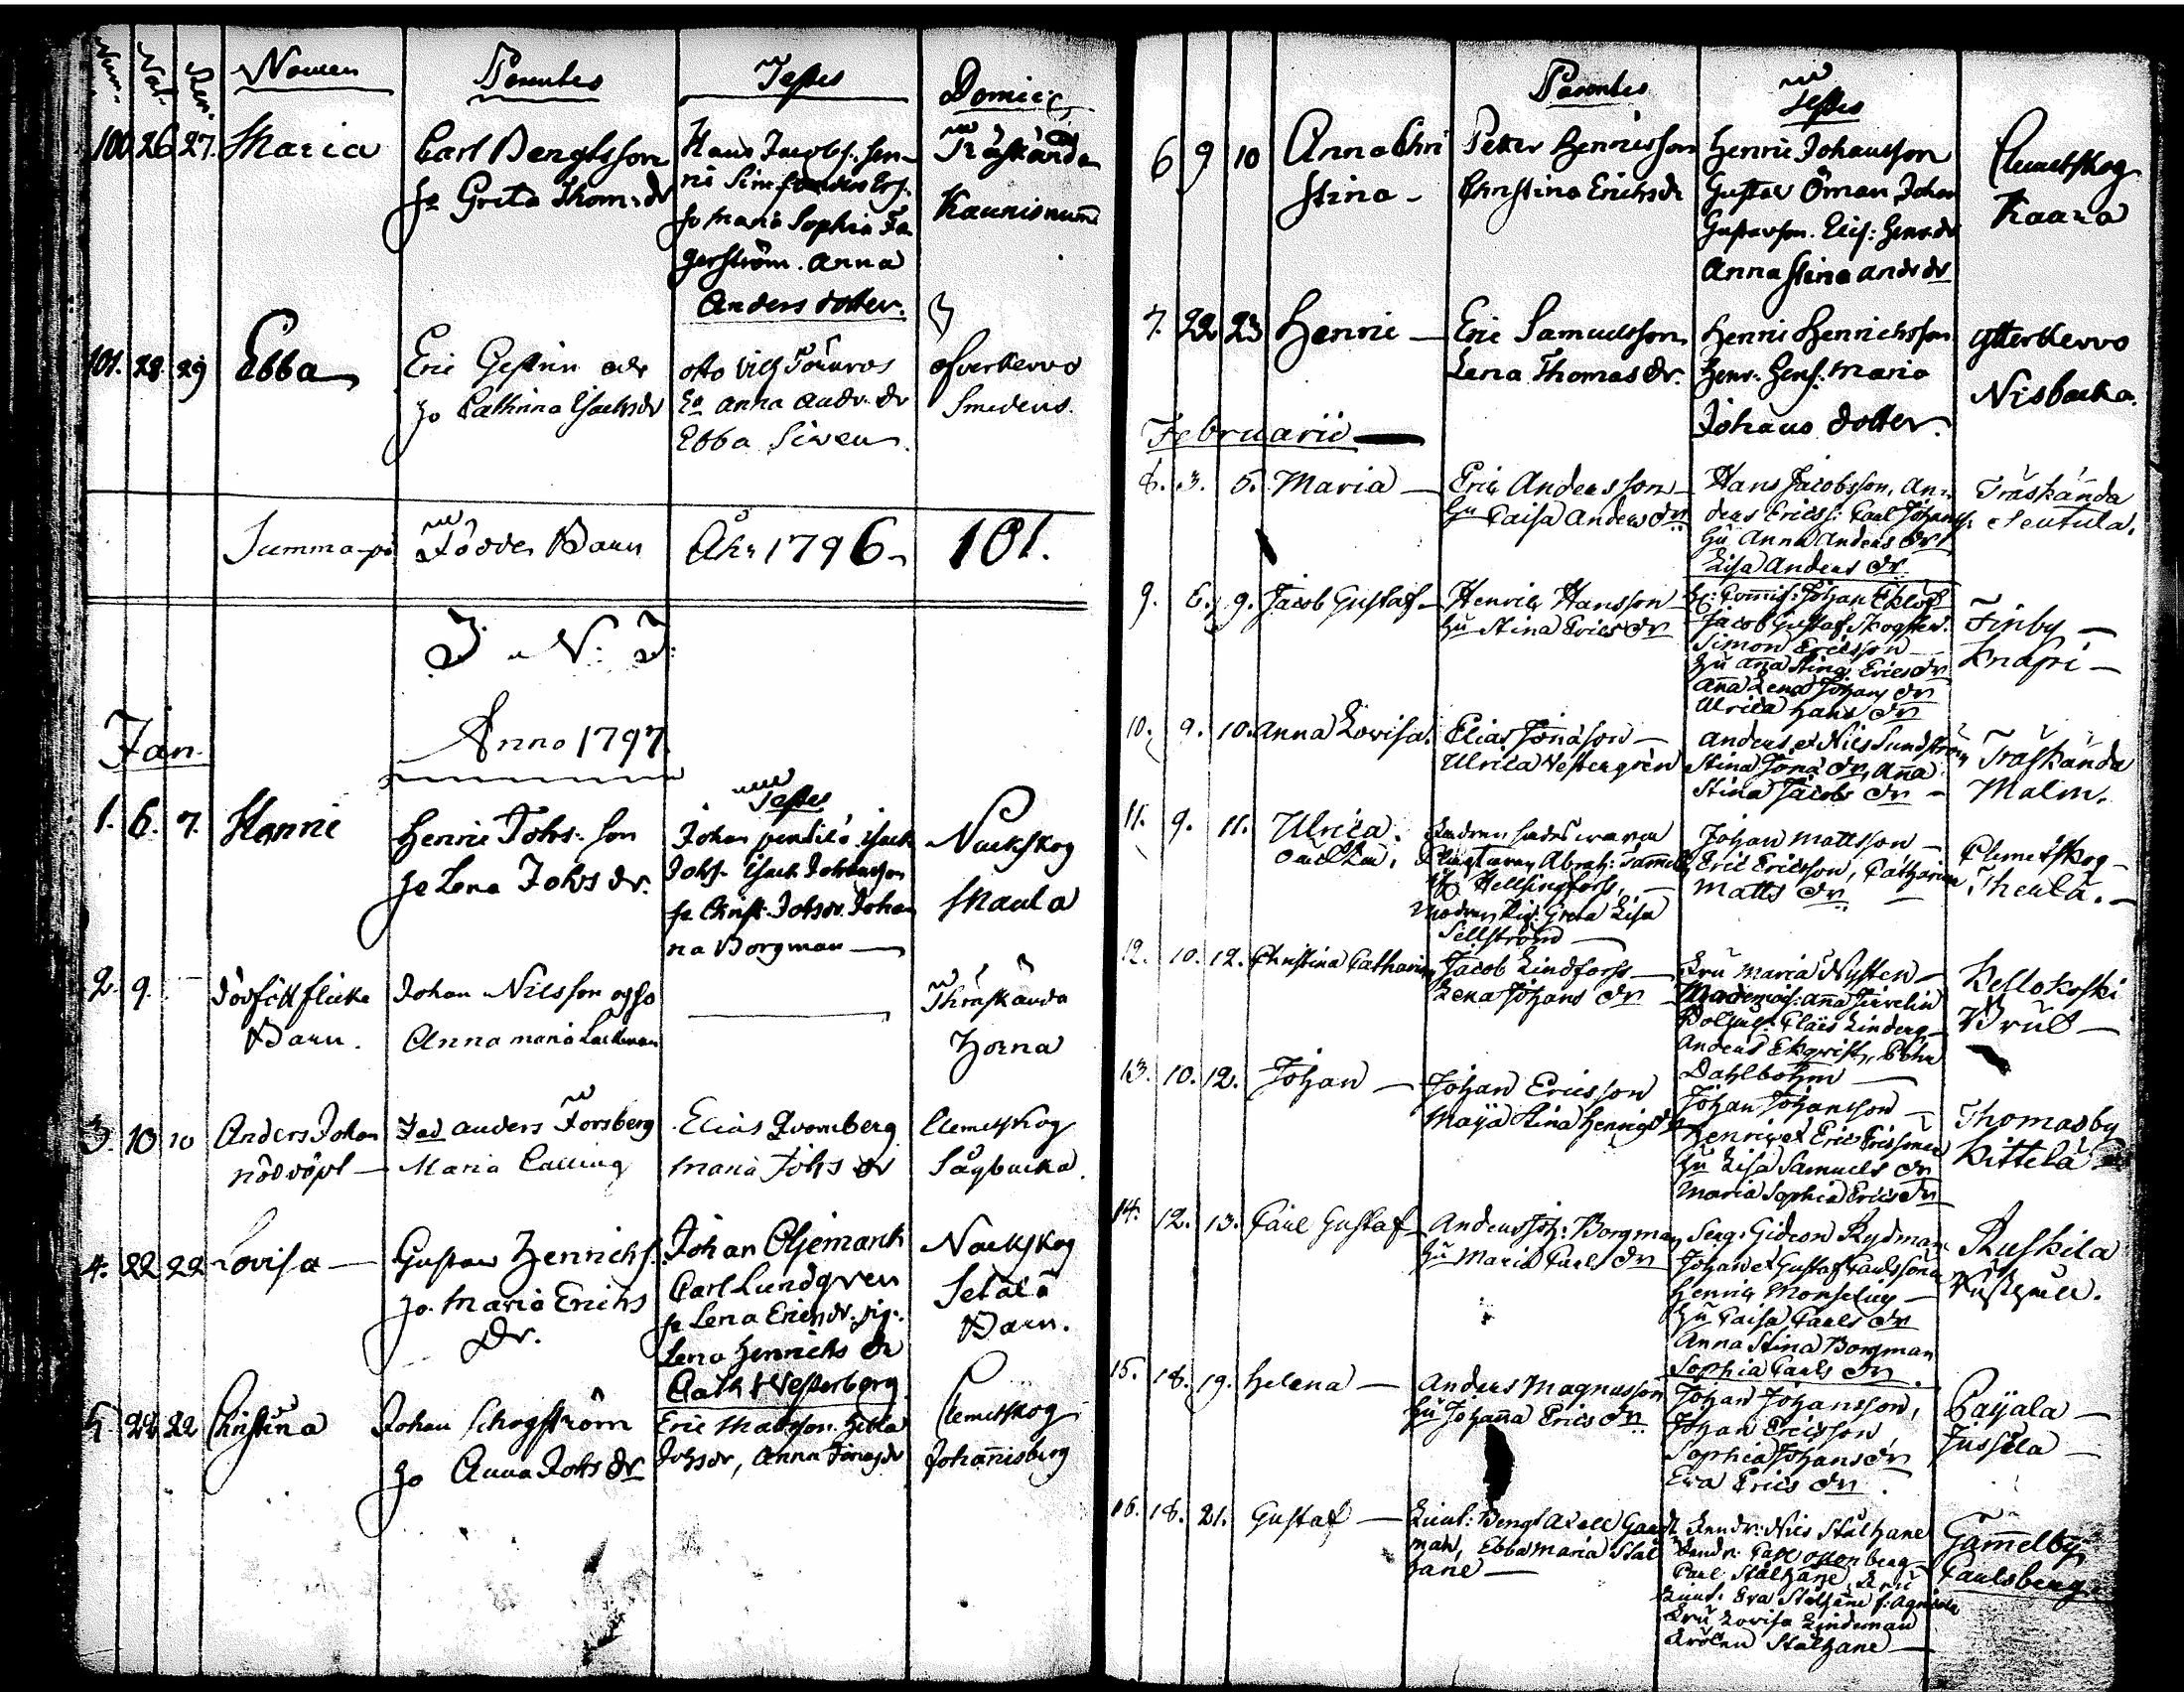 Num. Nat. Ren. Nomen Parentes Testes Domic
100. 26. 27. Maria
Carl Bengtsson
ho Greta Thom. dr
Hans Jacobs.
ho Maria Sophia Fa
gerström. Anna
Anders dotter.
Träskända
Kaunisnumi
101. 28. 29 Ebba
Eric Gestrin
ho Cathrina Isachs dr
Otto Vilh
Anna Andr. dr
Ebba Siven.
Ofverkervo
Smedens.
Summa på Födde Barn Åhr 1796 101.
J. N. J.
Anno 1797
Jan.
Testes
1. 6. 7. Henric
Henric Johs. son
ho Lena Johs dr.
Johan
Johs. Isach Johansson
ho Christ. Johs dr. Johan
na Borgman
Nackskog
Skaula
2. 9.
dödföt flicke
Barn.
Johan Nilsson og ho
Anna Maria Lackman
Thräskända
Horna
3. 10 10 Anders Johan
nöddöpt
Fad Anders Forsberg
Maria Calling
Elias Qvornberg
Maria Johs dr
Clemetskog
Sågbacka.
4. 22 22 Lovisa
Gustav Henrichs.
ho. Maria Erichs
Dr.
Johan Oljemark
Carl Lundqven
ho Lena Erichs dr. pig.
Lena Henrichs dr
Cath Westerberg
Nackskog
Setälä
Barn.
5. 22 22 Christina
Johan Schogström
ho Anna Johs dr
Eric Matsson
Johs dr, Anna Jonas dr
Clemetskog
Johannisberg
Parentes Testes
6 9 10 Anna Chri
stina
Petter Henricsson
Christina Erichs dr
Henric Johansson
Gustav Öman Johan
Gustavson. Elis: Henr. dr
Anna Stina Andr dr
Clemetskog
Kaara
7. 22 23 Henric
Eric Samuelsson
Lena Thomas dr.
Henric Henrichsson
Henr. Hens. Maria
Johans dotter.
Ytterkervo
Nisbacka.
Februarii
8. 3. 5. Maria
Eric Andersson
Hu Caisa Anders dr
Hans Jacobsson, An-
ders Ericss: Carl Johans.
Hu Anna Anders dr
Lisa Anders dr
Träskända
Seutula.
9. 6. 9. Jacob Gustaf
Henric Hansson
Hu Stina Erics dr
Hr: Commis: Johan Eklöf
Jacob Gustaf Skogster.
Simon Ericsson
Hu Anna Stina Erics dr
Anna Lena Johans dr
Ulrica Hans dr
Finby
Knapri
10. 9. 10. Anna Lovisa.
Elias Jonason
Ulrica Vestergrén
Anders et Nils Sundström
Stina Jona dr, Anna
Stina Jacobs dr
Träskända
Malm.
11. 9. 11. Ulrica.
oäckta.
Fadren sades wara
Abrah: Sammels
Hellsingfors,
Modren Pig: Greta Lisa
Sellström
Johan Mattsson
Eric Ericsson, Catharina
Matts dr
Clemetskog
Theulä.
12. 10. 12. Christina Catharina
Jacob Lindforss
Lena Johans dr
Fru Maria Nysten
Mademois: Anna Javelin
Claës Linderg
Anders Ekqvist,
Dahlbohm
Kellokoski
Bruk
13. 10. 12. Johan
Johan Ericsson
Maija Stina Henrics dr
Johan Johansson
Henric et Eric Ericssöner
Hu Lisa Samuels dr
Maria Sophia Erics dr
Thomasby
Kittelä
14. 12. 13. Carl Gustaf
Anders Joh: Borgman
Hu Maria Carls dr
Serg: Gideon Rydman
Johan et Gustaf Carlssöner
Henric Monselius
Hu Caisa Carls dr
Anna Stina Borgman
Sophia Carls dr.
Ruskila
15. 18. 19. Helena
Anders Magnusson
Hu Johanna Erics dr
Johan Johansson,
Johan Ericsson,
Sophia Johans dr
Eva Erics dr.
Paijala
Jussila
16. 18. 21. Gustaf
Lieut: Bengt Axell Gard
man, Ebba Maria Stål
hane
Fendr: Nils Stålhane
Fendr: Carl
Carl Stålhane, Fru
Lieut: Eva Stålhane f: Agricola
Fru Lovisa Lindeman
Fröken Stålhane
Gammelby
Carlsberg